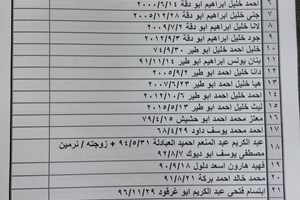 احمد خليل ابراهيم ابو دقة ٢٠٠٠/٦/١٤
جنى خليل ابراهيم ابو دقة ٢٠٠٥/١٢/٢٨ ٥
لانا خليل ابراهيم ابو دقة ٢٠٠٩/٧/٢ ٨
جود خليل ابراهيم ابو دقة ٢٠١٢/٩/٣ ٩
خليل احمد خليل ابو طير ٧٤/٩/٣٠ ١٠
بنان يونس ابراهيم ابو طير ٩١/١١/١٤ ١١
دانا خليل احمد ابو طير ٢٠٠٥/٩/٢ ١٢
هيا خليل احمد ابو طير ٢٠٠٧/٦/٢٣ ١٣
احمد خليل احمد ابو طير ٢٠١٢/١٠/٦ ١٤
ليث خليل احمد ابو طير ٢٠١٥/٥/١٣ ١٥
معتز محمد احمد ابو حشيش ٧٩/٤/١٥ ١٦
احمد محمد يوسف داود ٦٨/٤/٢٩ ١٧
عبد الكريم عبد المنعم احميد العبادلة ٩٤/٥/٣١ + زوجته / نرمين ١٨
مصطفى يوسف ابو ديوك ٩٢/٨/٧
فهيد هارون اسعد دلول ٩٠/٩/١٨ ١٩
محمد خالد احمد بركة ٩١/٨/٢١ ٢٠
ابتسام فتحى عبد الكريم ابو غرقود ٩٦/١١/٢٩ ٢١